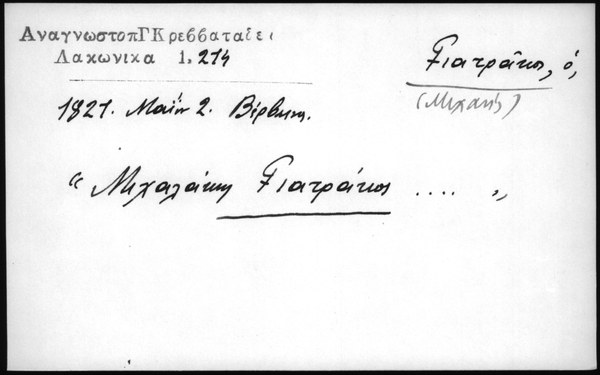 ΑναγνωστοπΓΚρεββαταδε
Λακωνικα 1. 214
Γιατράκος, ὁ,
(Μιχαήλ)
1821. Μαΐου 2. Βέρβενα.
“ Μιχαλάκης Γιατράκος .... ”